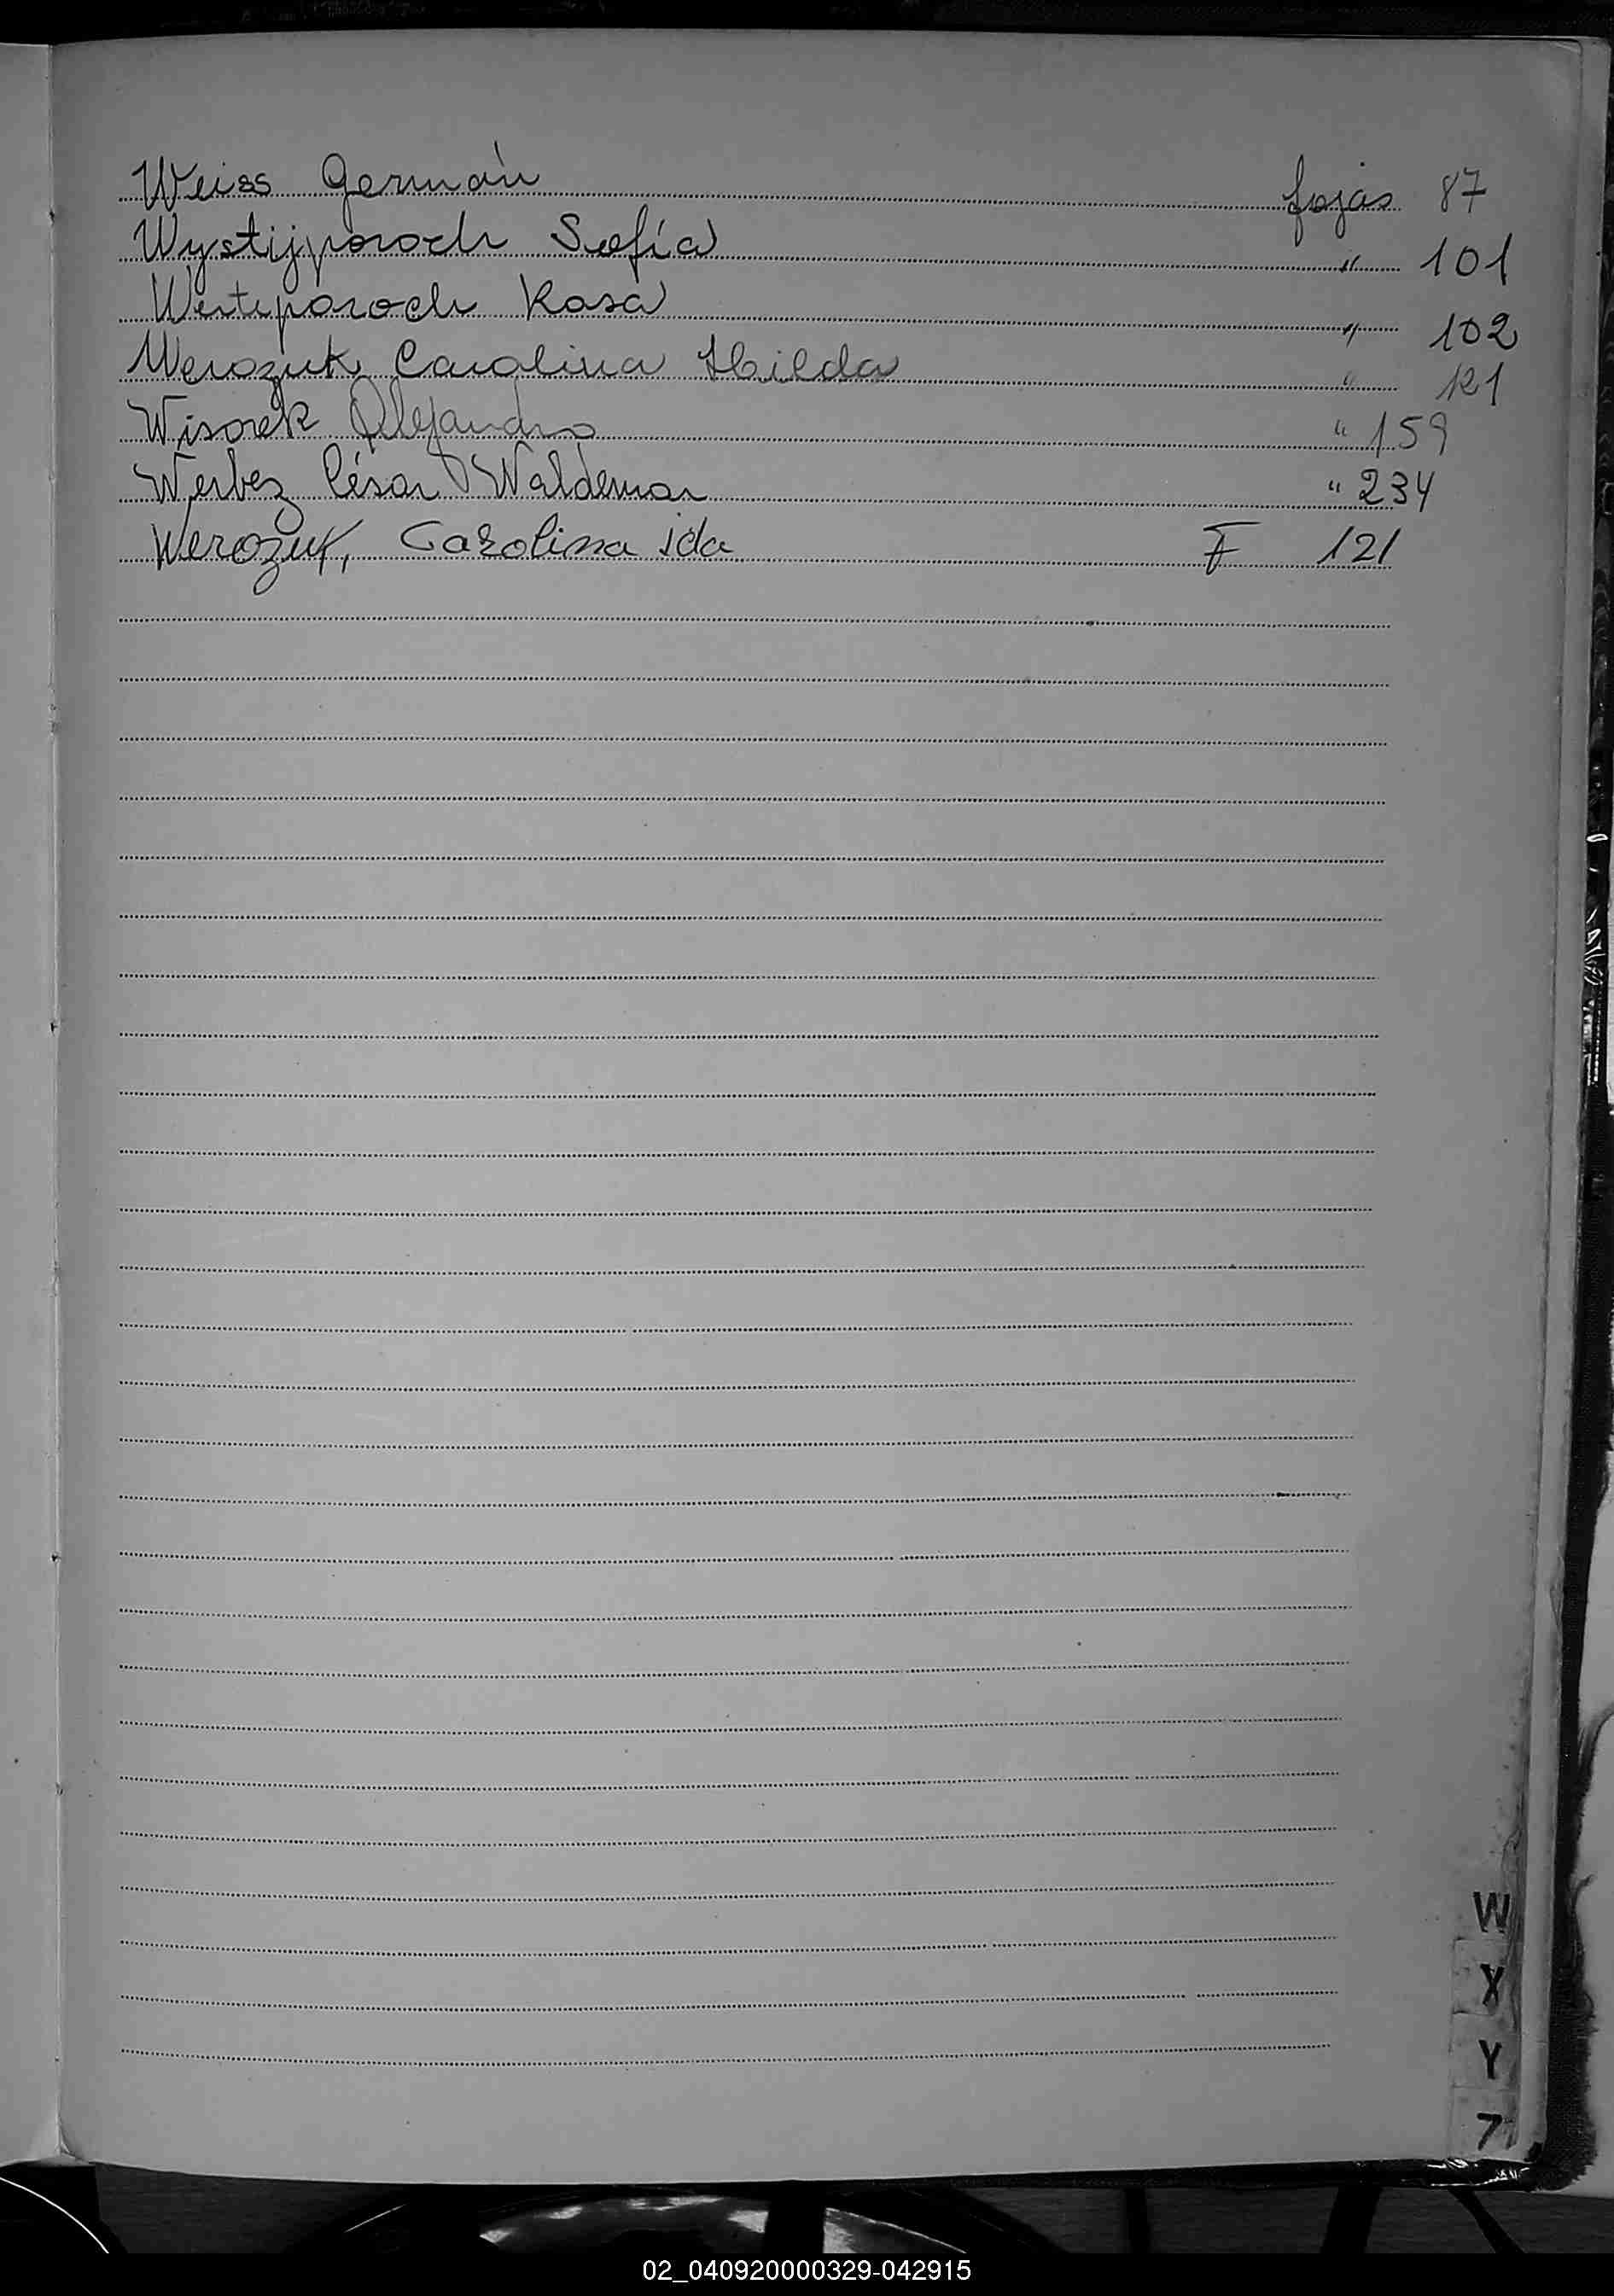 Weiss Germán fojas 87
Wystijporoch Sofía " 101
Westiporoch Rosa " 102
Werozuk Carolina Hilda " 121
Wisorek Alejandro " 159
Werbez César Waldemar " 234
Werozuk, Carolina ida F 121
W
X
Y
Z
02_040920000329-042915